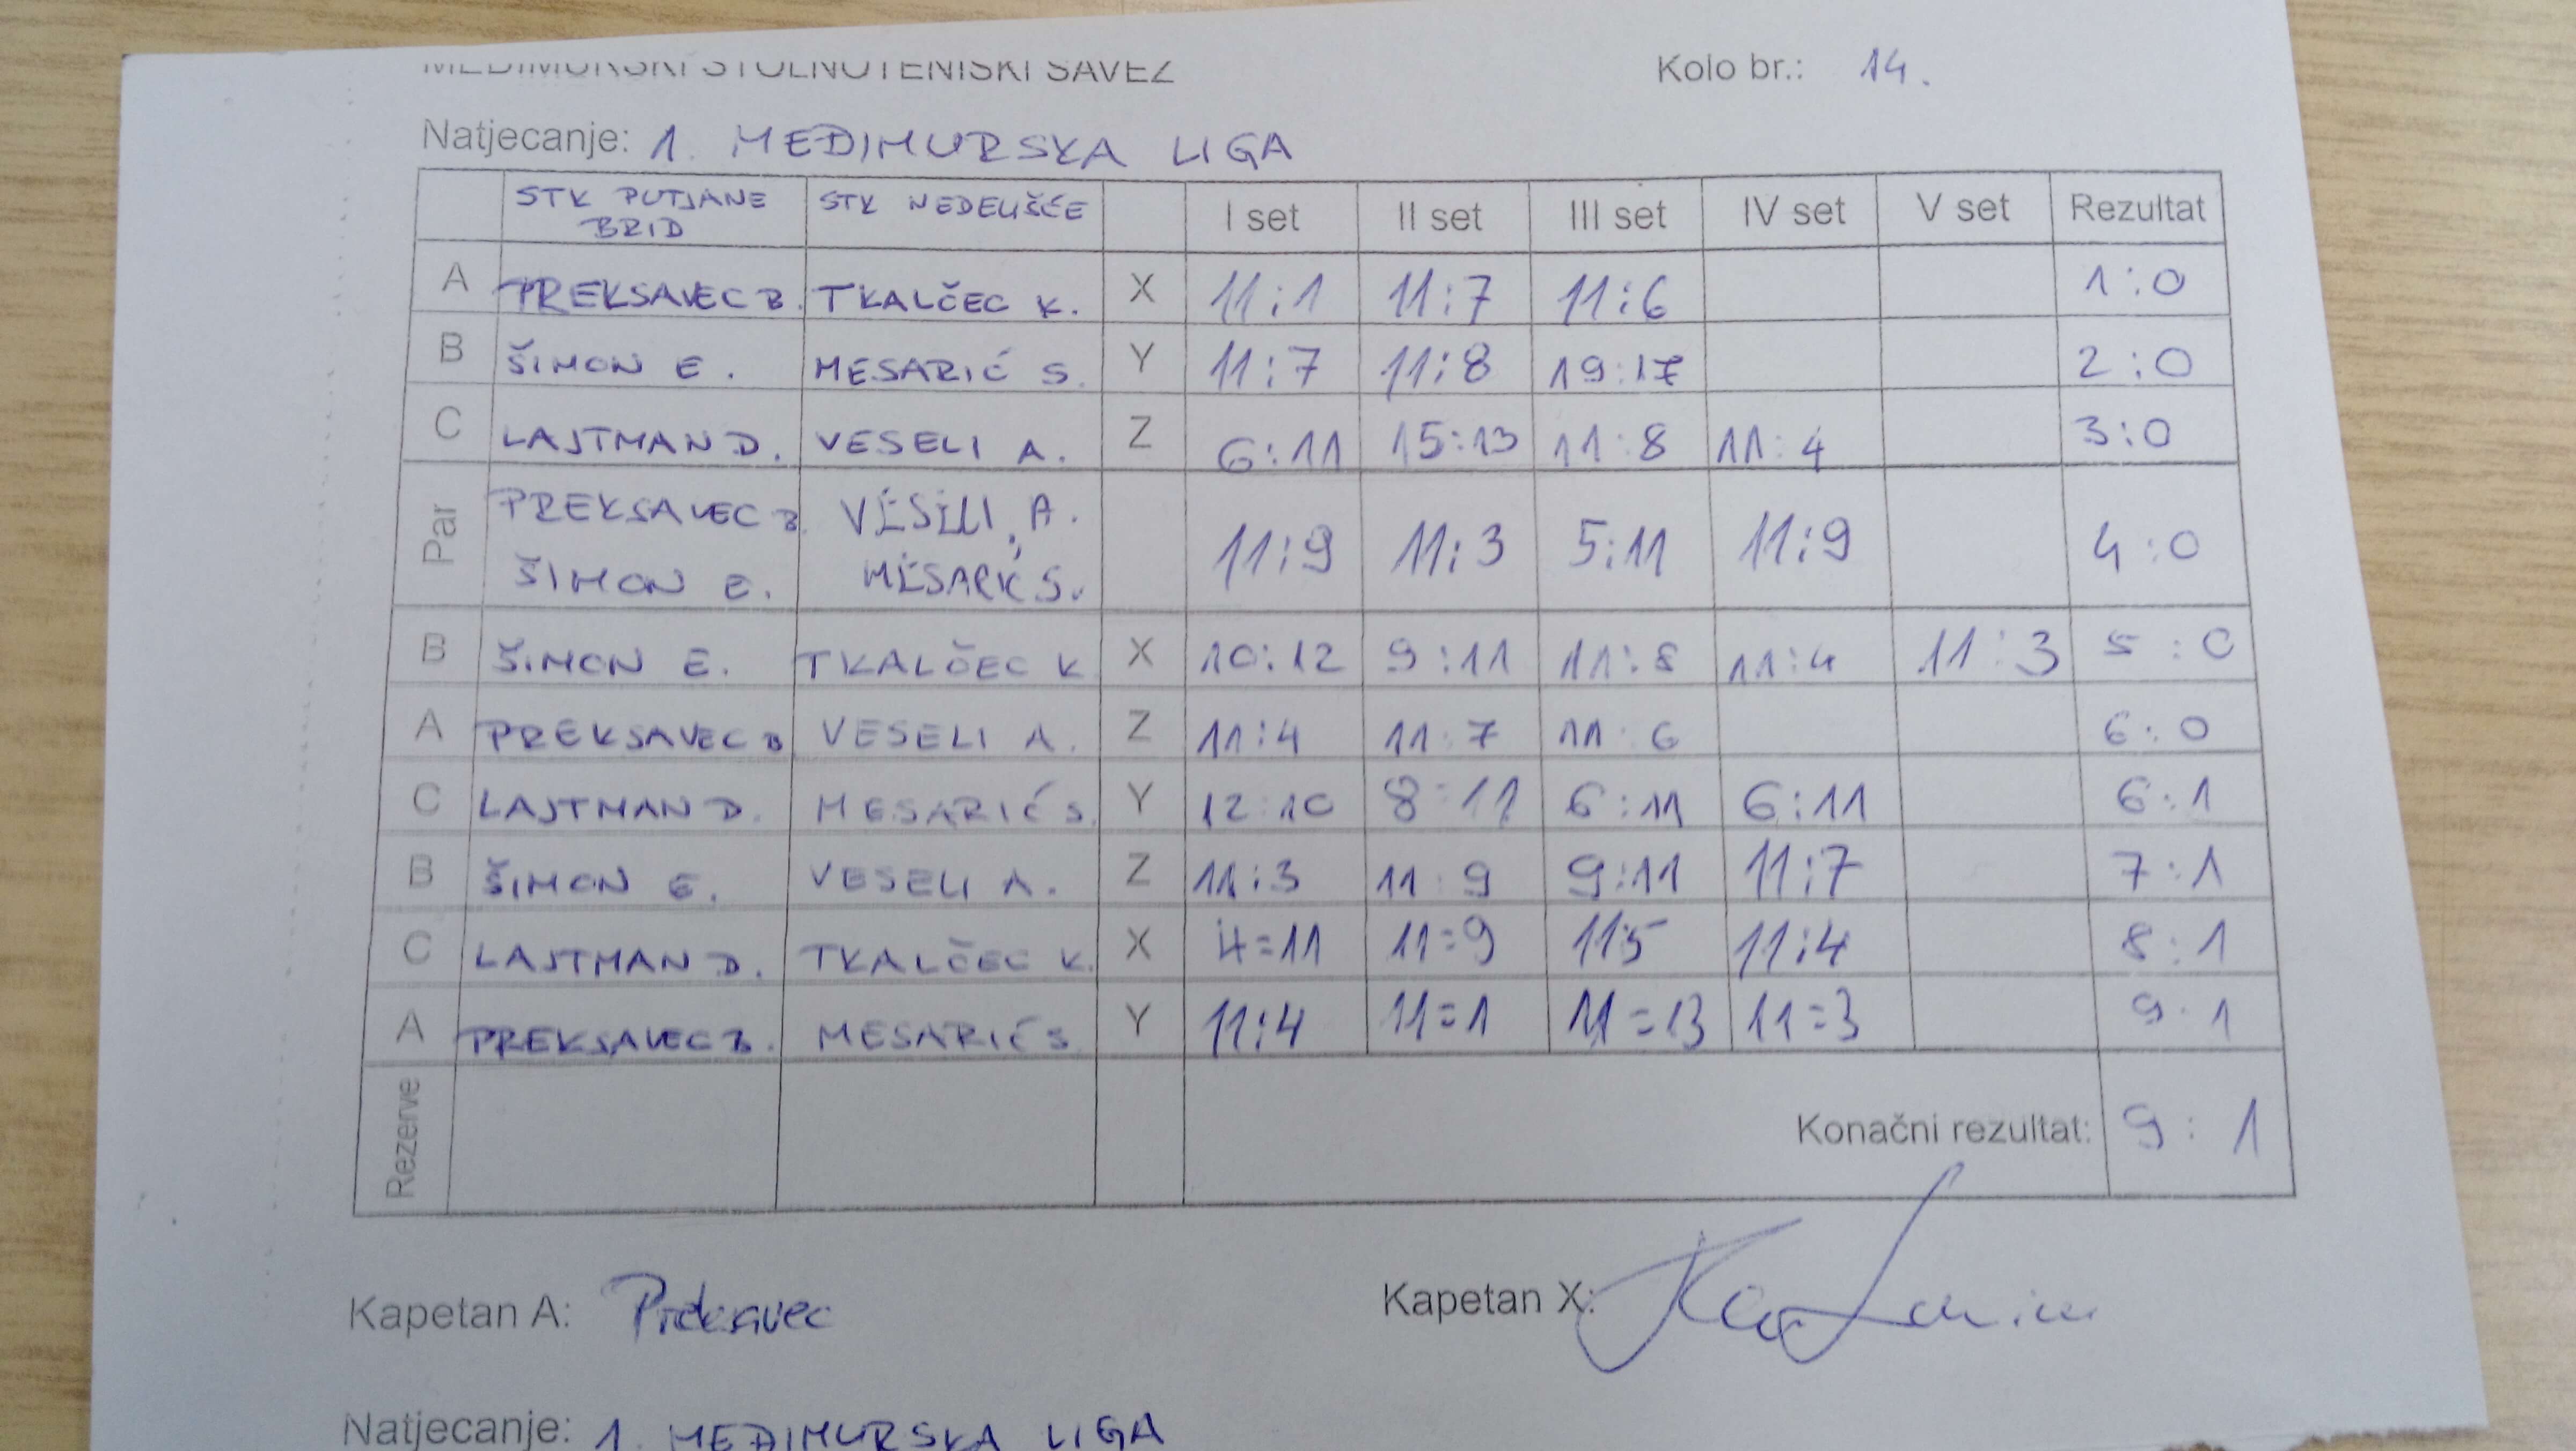 MEĐIMURSKI STOLNOTENISKI SAVEZ Kolo br.: 14.
Natjecanje: 1. MEĐIMURSKA LIGA
STK PUTJANE BRID STK NEDELIŠĆE I set II set III set IV set V set Rezultat
A PREKSAVEC B. TKALČEC K. X 11:1 11:7 11:6 1:0
B ŠIMON E. MESARIĆ S. Y 11:7 11:8 19:17 2:0
C LAJTMAN D. VESELI A. Z 6:11 15:13 11:8 11:4 3:0
Par PREKSAVEC B. VESELI A. 11:9 11:3 5:11 11:9 4:0
ŠIMON E. MESARIĆ S.
B ŠIMON E. TKALČEC K X 10:12 9:11 11:8 11:4 11:3 5:0
A PREKSAVEC B VESELI A. Z 11:4 11:7 11:6 6:0
C LAJTMAN D. MESARIĆ S. Y 12:10 8:11 6:11 6:11 6:1
B ŠIMON E. VESELI A. Z 11:3 11:9 9:11 11:7 7:1
C LAJTMAN D. TKALČEC K. X 4=11 11=9 11:5 11:4 8:1
A PREKSAVEC B. MESARIĆ S. Y 11:4 11=1 11=13 11=3 9:1
Rezerve Konačni rezultat: 9:1
Kapetan A: Preksavec Kapetan X:
Natjecanje: 1. MEĐIMURSKA LIGA